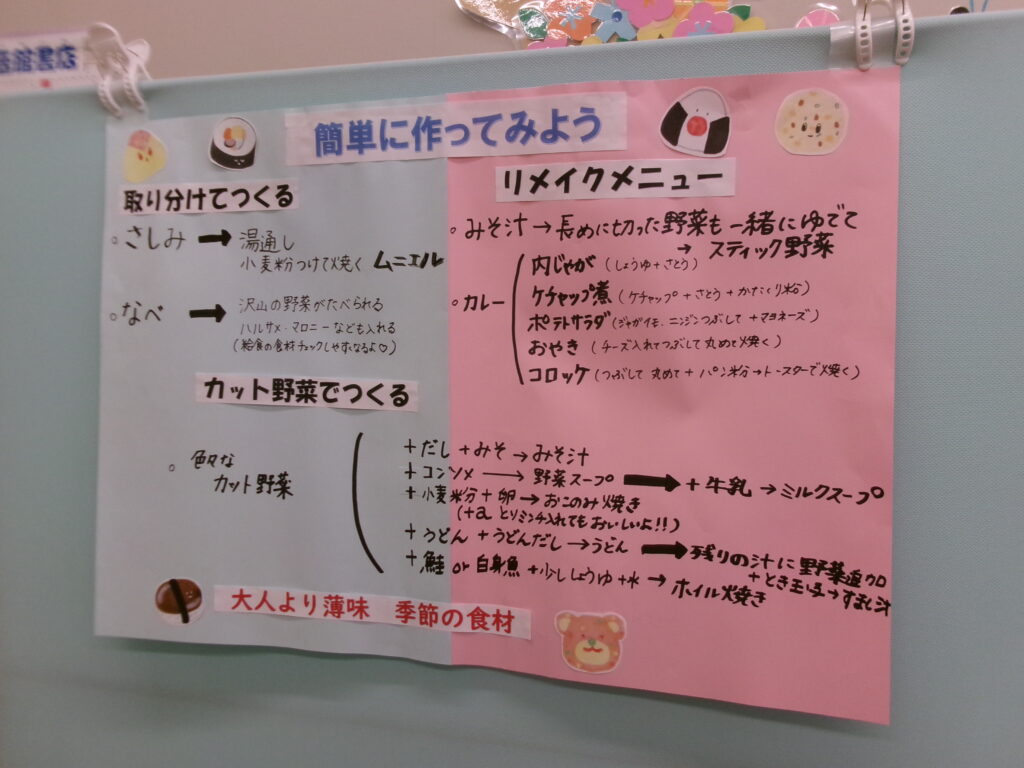 館書店
簡単に作ってみよう
取り分けてつくる
。さしみ → 湯通し
小麦粉つけて焼く ムニエル
。なべ → 沢山の野菜がたべられる
ハルサメ・マロニーなども入れる
(給食の食材チェックしやすくなるよ♡)
リメイクメニュー
。みそ汁 → 長めに切った野菜も一緒にゆでて
→ スティック野菜
。カレー
肉じゃが (しょうゆ+さとう)
ケチャップ煮 (ケチャップ+さとう+かたくり粉)
ポテトサラダ (ジャガイモ、ニンジンつぶして+マヨネーズ)
おやき (チーズ入れてつぶして丸めて焼く)
コロッケ (つぶして丸めて+パン粉→トースターで焼く)
カット野菜でつくる
。色々な
カット野菜
+だし+みそ→みそ汁
+コンソメ→野菜スープ→+牛乳→ミルクスープ
+小麦粉+卵→おこのみ焼き
(+a とりミンチ入れてもおいしいよ!!)
+うどん+うどんだし→うどん→残りの汁に野菜追加
+とき玉子→すまし汁
+鮭 or 白身魚+少ししょうゆ+水→ホイル焼き
大人より薄味 季節の食材